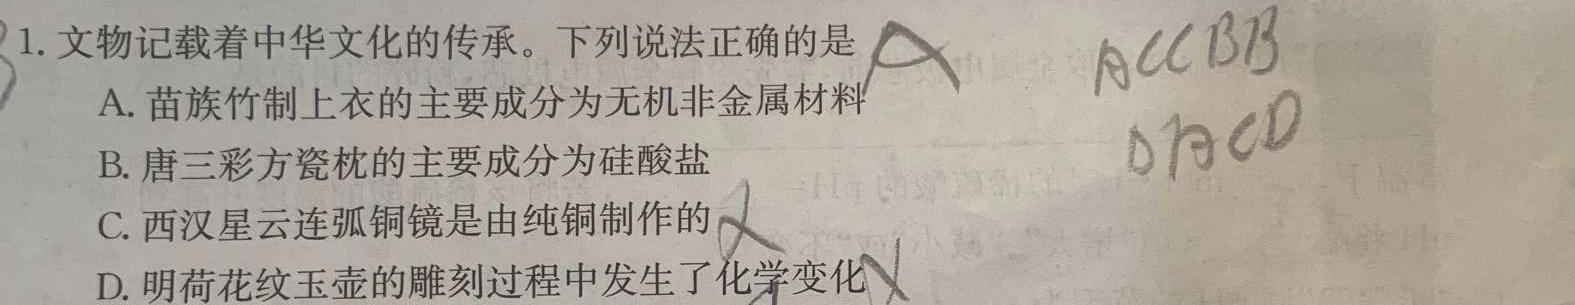 1. 文物记载着中华文化的传承。下列说法正确的是
A. 苗族竹制上衣的主要成分为无机非金属材料
B. 唐三彩方瓷枕的主要成分为硅酸盐
C. 西汉星云连弧铜镜是由纯铜制作的
D. 明荷花纹玉壶的雕刻过程中发生了化学变化
ACCBB
DACD